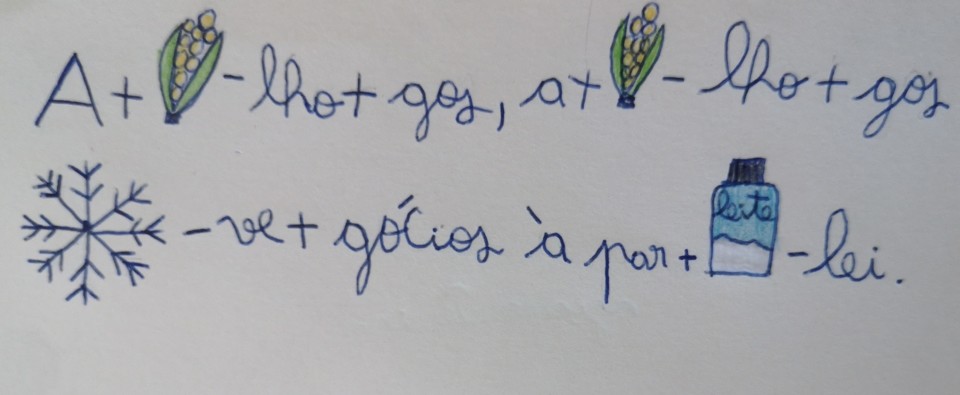 A + - lho + gos, a + - lho + gos
leite
- ve + gócios à par + - lei.